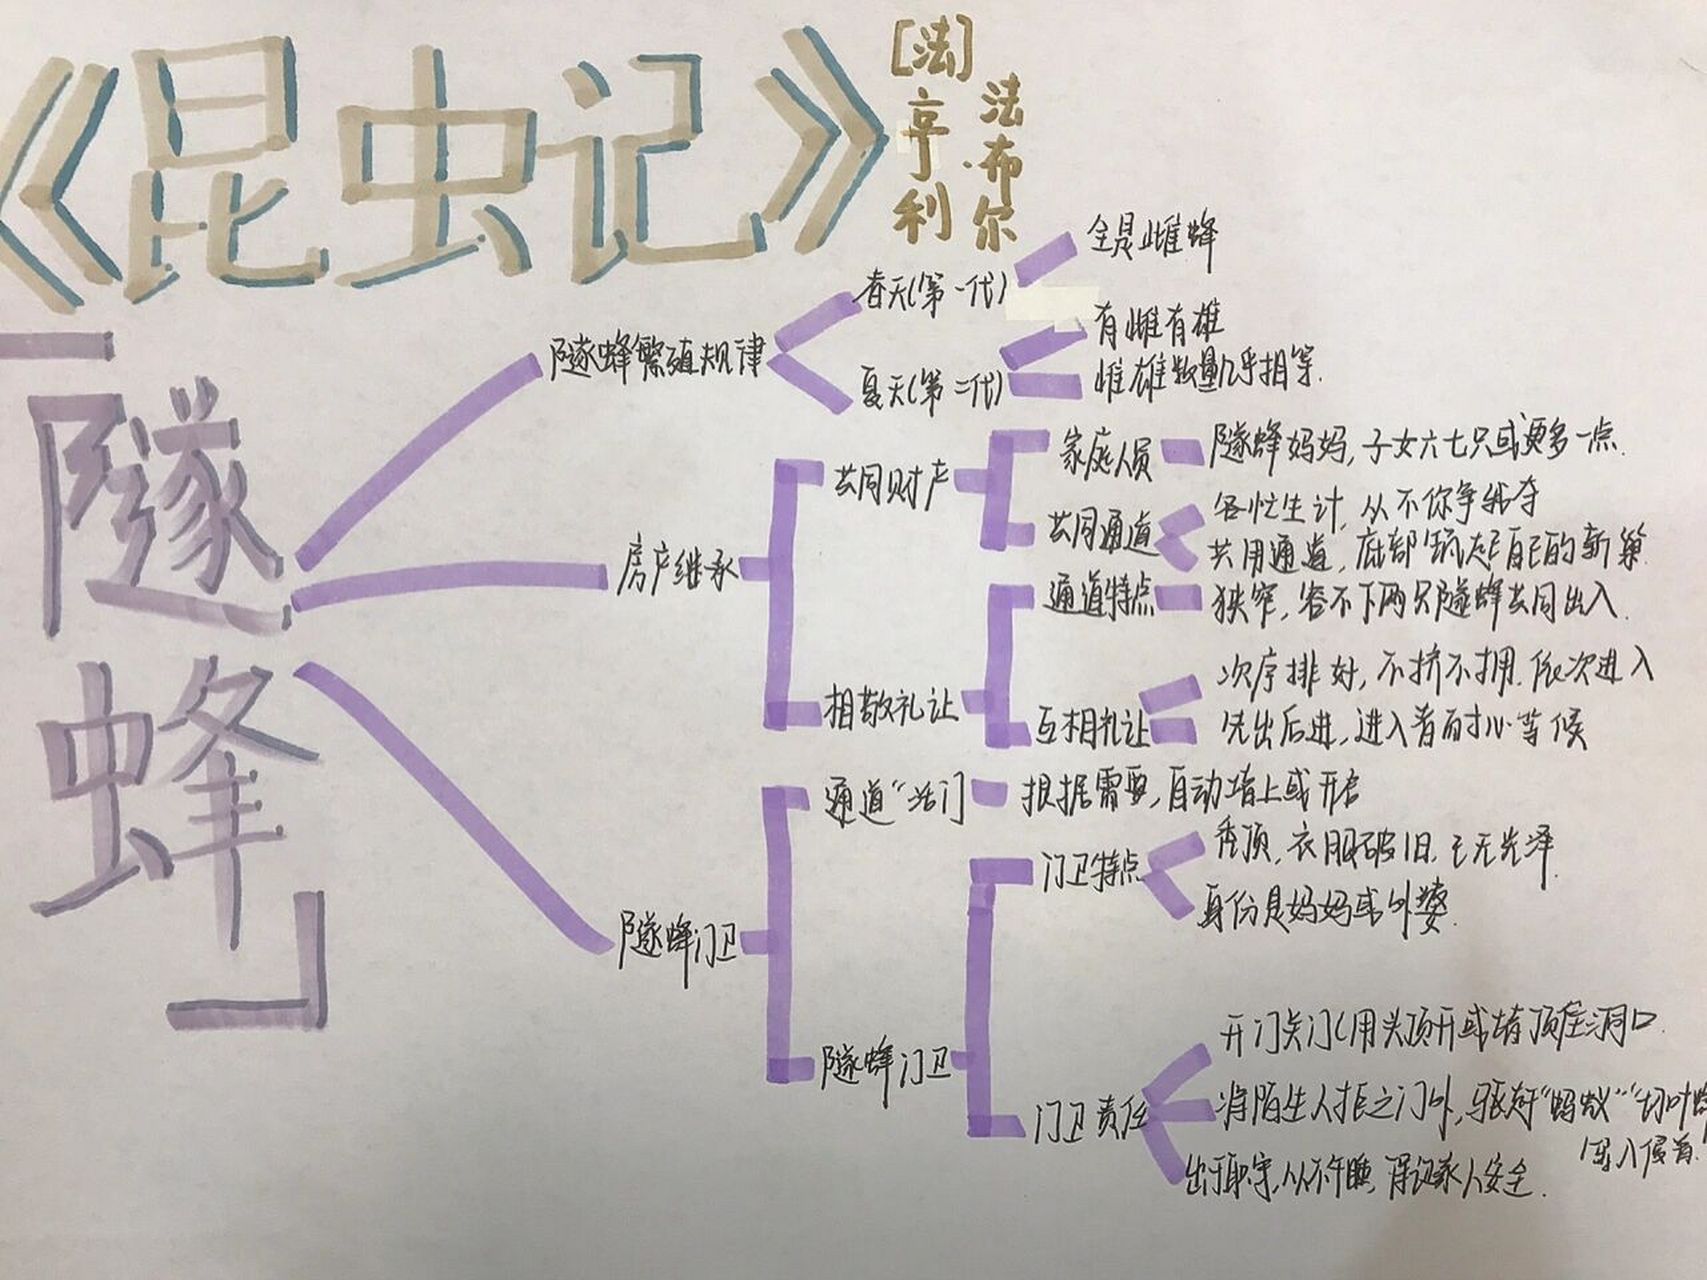 《昆虫记》
[法]
亨利
法布尔
「隧
蜂」
隧蜂繁殖规律
春天(第一代)
全是雌蜂
夏天(第二代)
有雌有雄
雌雄数量几乎相等.
房产继承
共同财产
家庭人员
隧蜂妈妈,子女六七只或更多一点.
共同通道
各忙生计,从不你争我夺
共用通道,底部筑起自己的新巢.
相敬礼让
通道特点
狭窄,容不下两只隧蜂共同出入.
互相礼让
次序排好,不挤不拥.依次进入
先出后进,进入者耐心等候
隧蜂门卫
通道"活门
根据需要,自动堵上或开启
隧蜂门卫
门卫特点
秃顶,衣服破旧.已无光泽.
身份是妈妈或外婆.
门卫责任
开门关门(用头顶开或堵 顶住洞口.
将陌生人拒之门外,驱赶"蚂蚁""切叶蜂
深入侵者.
守,从不午睡,保证家人安全.